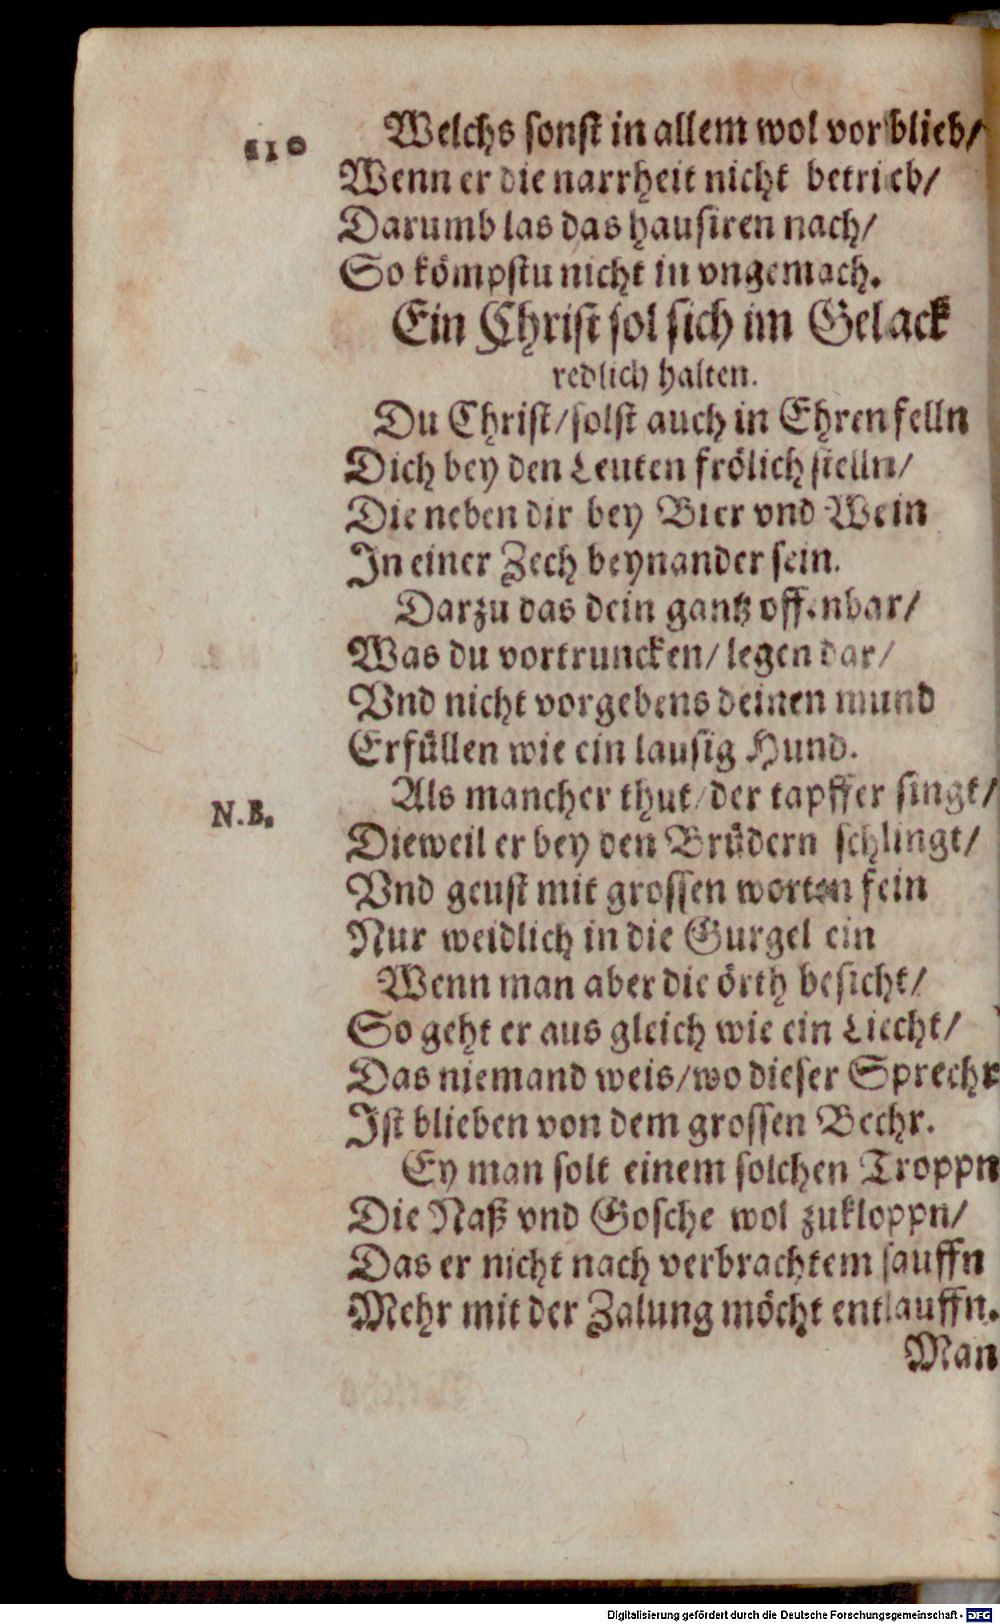 110
Welchs sonst in allem wol vorblieb/
Wenn er die narrheit nicht betrieb/
Darumb las das hausiren nach/
So kömpstu nicht in vngemach.
Ein Christ sol sich im Gelack
redlich halten.
Du Christ/solst auch in Ehren felln
Dich bey den Leuten frölich stelln/
Die neben dir bey Bier vnd Wein
In einer Zech beynander sein.
Darzu das dein gantz offenbar/
Was du vortruncken/legen dar/
Vnd nicht vorgebens deinen mund
Erfüllen wie ein lausig Hund.
Als mancher thut/der tapffer singt/
N.B.
Dieweil er bey den Brüdern schlingt/
Vnd geust mit grossen worten fein
Nur weidlich in die Gurgel ein
Wenn man aber die örth besicht/
So geht er aus gleich wie ein Liecht/
Das niemand weis/wo dieser Sprechr
Ist blieben von dem grossen Bechr.
Ey man solt einem solchen Troppn
Die Naß vnd Gosche wol zukloppn/
Das er nicht nach verbrachtem sauffn
Mehr mit der Zalung möcht entlauffn.
Man
Digitalisierung gefördert durch die Deutsche Forschungsgemeinschaft - DFG